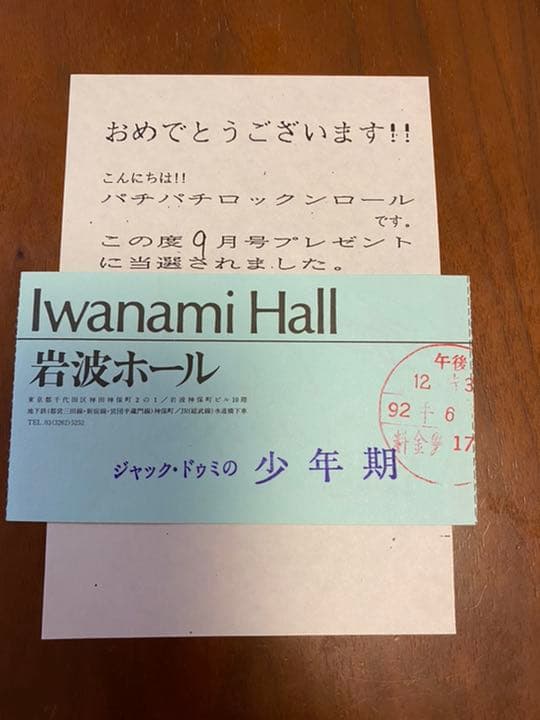 おめでとうございます!!
こんにちは!!
バチバチロックンロール
です。
この度9月号プレゼント
に当選されました。
Iwanami Hall
岩波ホール
東京都千代田区神田神保町2の1/岩波神保町ビル10階
地下鉄(都営三田線・新宿線・営団半蔵門線)神保町/JR(総武線)水道橋下車
TEL.03(3262)5252
午後
12 3
92 6
料金 17
ジャック・ドゥミの 少年期